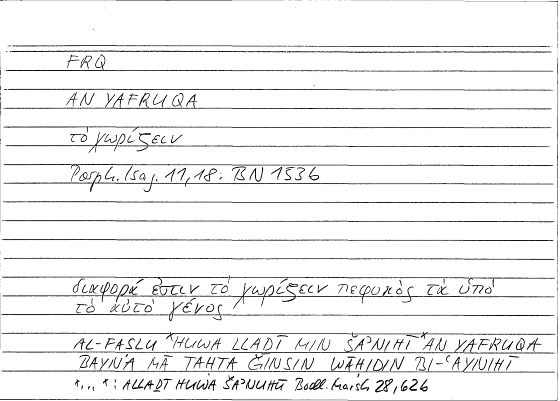 FRQ
AN YAFRUQA
τὸ χωρίζειν
Porph. Isag. 11,18: BN 1536
διαφορά ἐστιν τὸ χωρίζειν πεφυκὸς τὰ ὑπὸ
τὸ αὐτὸ γένος
AL-FASLU *HUWA LLADĪ MIN ŠAʾNIHĪ* AN YAFRUQA
BAYNA MĀ TAHTA ǦINSIN WĀHIDIN BI-ʿAYNIHĪ
*...*: ALLADĪ HUWA ŠAʾNUHŪ Bodl. Marsh 28,626